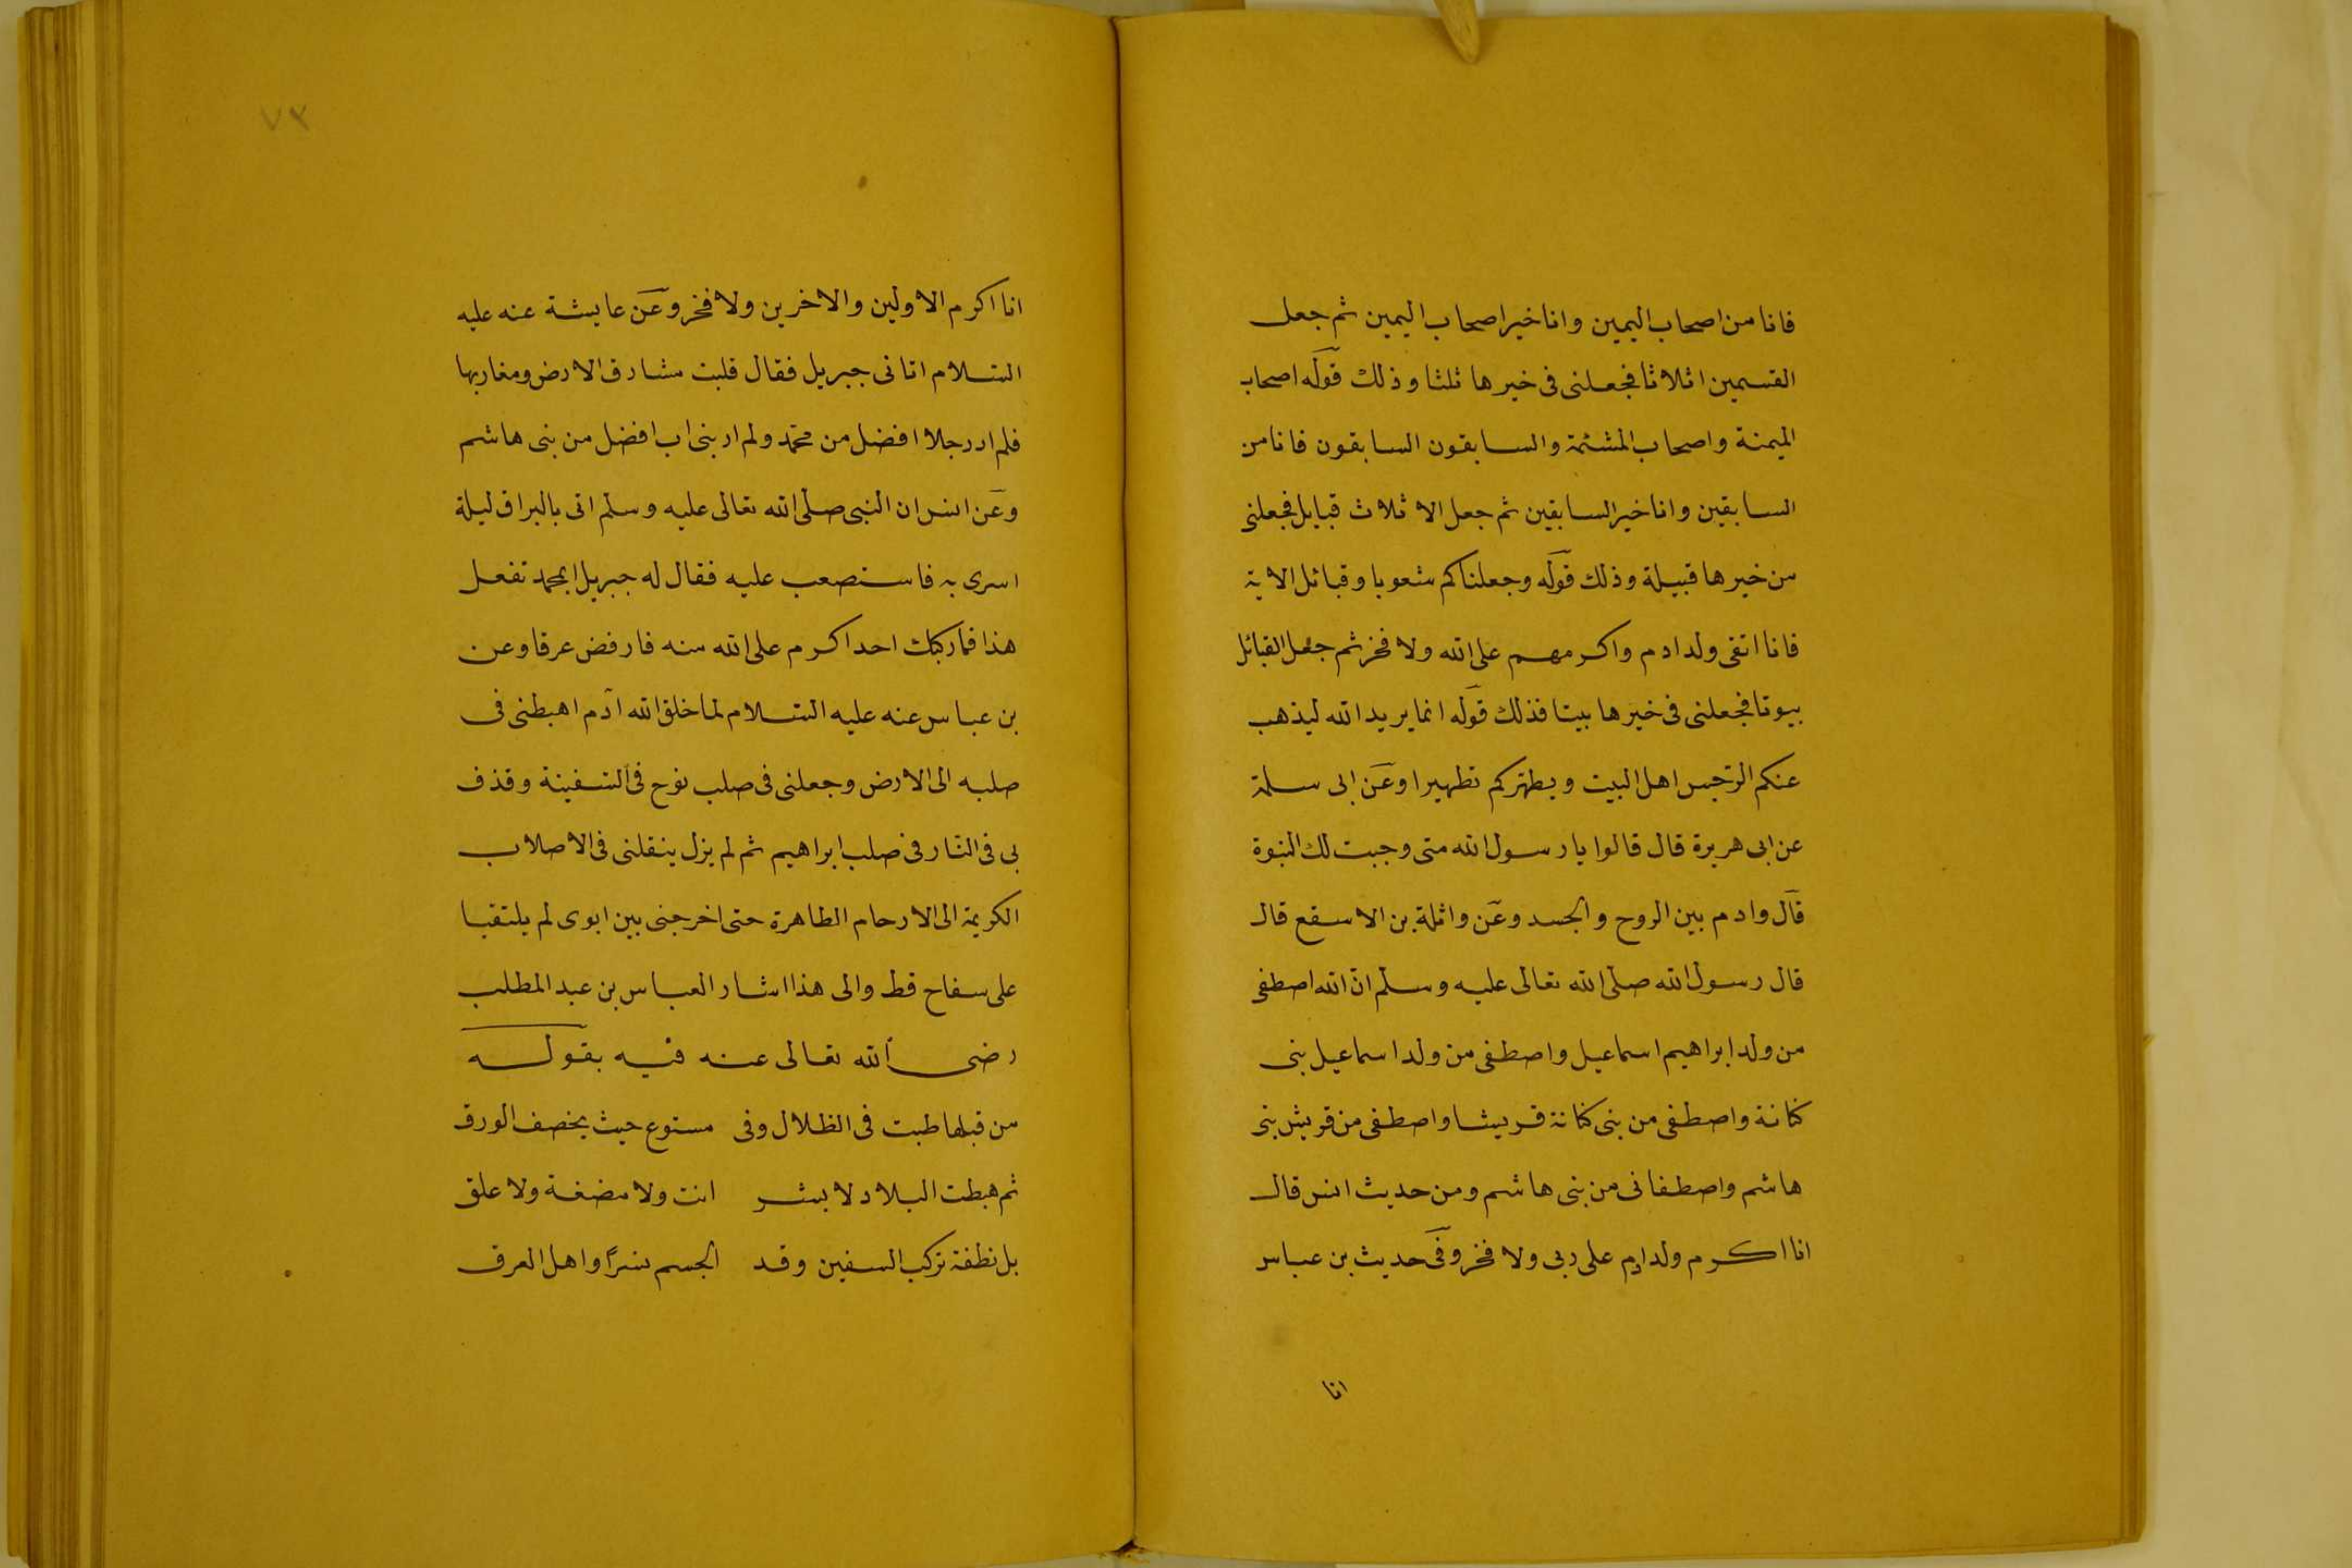 فانا من اصحاب اليمين وانا خير اصحاب اليمين ثم جعل
القسمين اثلاثا فجعلنى فى خيرها ثلثا وذلك قوله اصحاب
الميمنة واصحاب المشئمة والسابقون السابقون فانا من
السابقين وانا خير السابقين ثم جعل الاثلاث قبايل فجعلنى
من خيرها قبيلة وذلك قوله وجعلناكم شعوبا وقبائل الاية
فانا اتقى ولد ادم واكرمهم على الله ولا فخر ثم جعل القبائل
بيوتا فجعلنى فى خيرها بيتا فذلك قوله انما يريد الله ليذهب
عنكم الرّجس اهل البيت ويطهّركم تطهيرا وعن ابى سلمة
عن ابى هريرة قال قالوا يا رسول الله متى وجبت لك النبوة
قال وادم بين الروح والجسد وعن واثلة بن الاسقع قال
قال رسول الله صلى الله تعالى عليه وسلم انّ الله اصطفى
من ولد ابراهيم اسماعيل واصطفى من ولد اسماعيل بنى
كنانة واصطفى من بنى كنانة قريشا واصطفى من قريش بنى
هاشم واصطفانى من بنى هاشم ومن حديث انس قال
انا اكرم ولد ادم على ربى ولا فخر وفى حديث بن عباس
انا
٧٣
انا اكرم الاولين والاخرين ولا فخر وعن عايشة عنه عليه
السّلام اتانى جبريل فقال قلبت مشارق الارض ومغاربها
فلم ار رجلا افضل من محمّد ولم ار بنى اب افضل من بنى هاشم
وعن انس ان النبى صلى الله تعالى عليه وسلم اتى بالبراق ليلة
اسرى به فاستصعب عليه فقال له جبريل ابمحمد تفعل
هذا فما ركبك احد اكرم على الله منه فارفض عرقا وعن
بن عباس عنه عليه السّلام لما خلق الله آدم اهبطنى فى
صلبه الى الارض وجعلنى فى صلب نوح فى السّفينة وقذف
بى فى النّار فى صلب ابراهيم ثم لم يزل ينقلنى فى الاصلاب
الكريمة الى الارحام الطاهرة حتى اخرجنى بين ابوى لم يلتقيا
على سفاح قط والى هذا اشار العباس بن عبد المطلب
رضى الله تعالى عنه فيه بقوله
من قبلها طبت فى الظلال وفى مستوع حيث يخصف الورق
ثم هبطت البلاد لا بشر انت ولا مضغة ولا علق
بل نطفة تركب السفين وقد الجسم نسرًا واهل الغرق